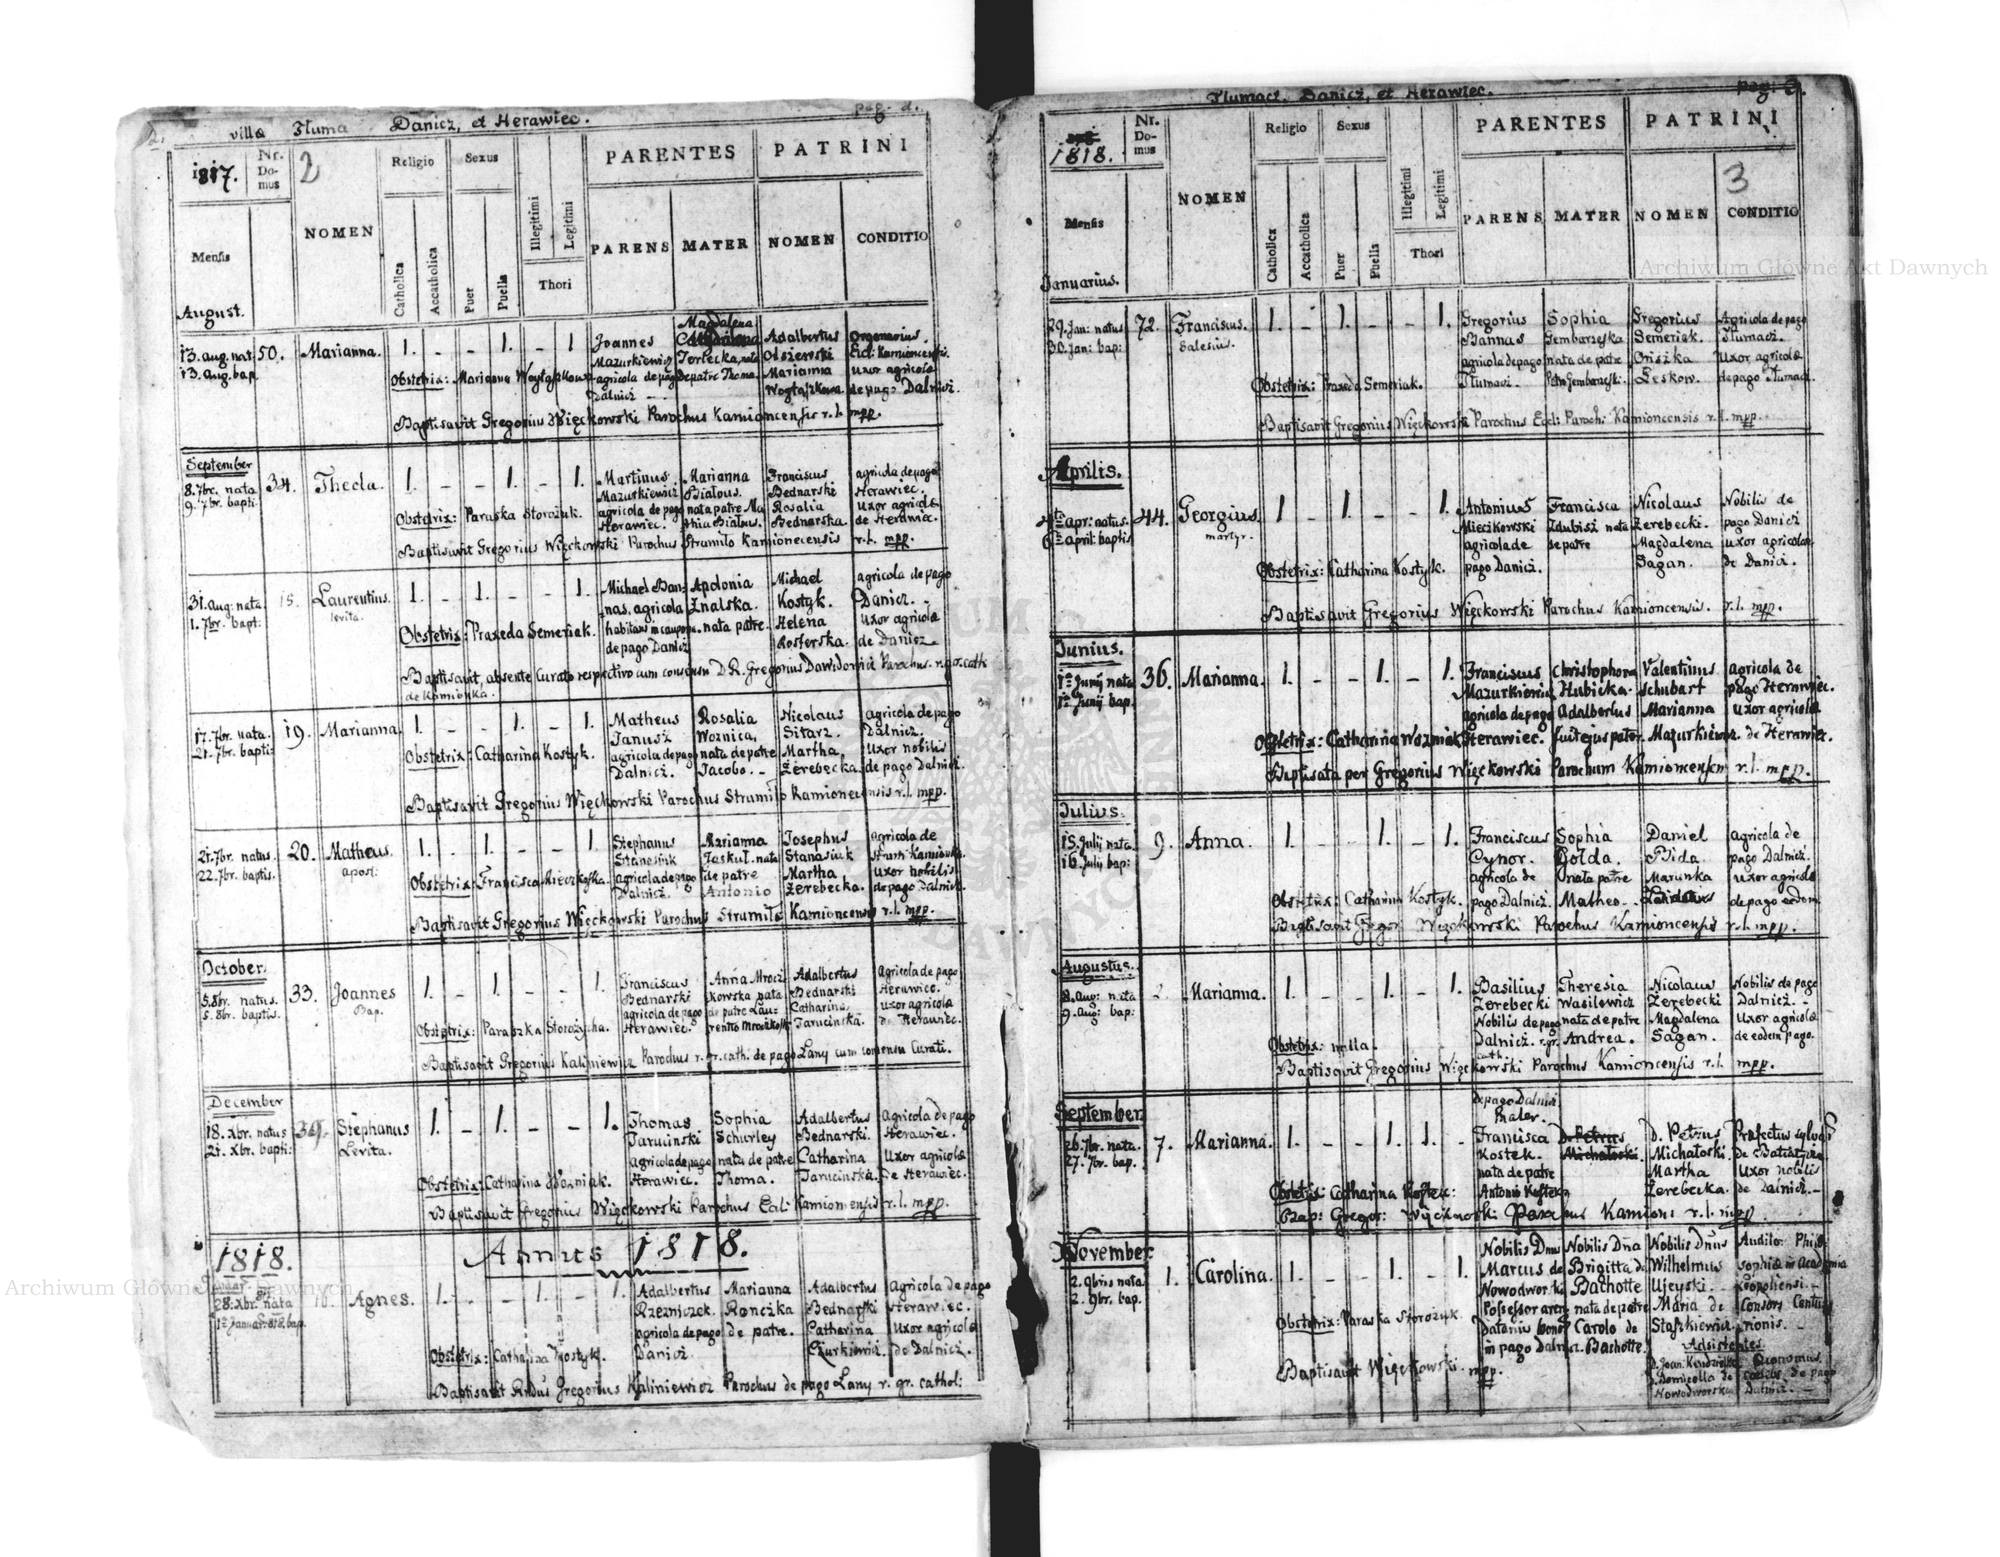 2.
villa Tłuma Danicz, et Herawiec.
pag. 2.
1817.
Nr. Domus
2
NOMEN
Religio
Sexus
Illegitimi
Legitimi
Thori
PARENTES
PATRINI
Mensis
Catholica
Accatholica
Puer
Puella
PARENS
MATER
NOMEN
CONDITIO
August.
13. aug. nat
13. Aug. bap.
50.
Marianna.
1. - - 1. - 1
Joannes
Mazurkiewicz
agricola de pago
Dalnicz
Magdalena
Terlecka, nata
de patre Thoma.
Adalbertus
Olszewski
Marianna
Organarius
Ecl: Kamioncensis.
uxor agricolæ
de pago Dalnicz.
Obstetrix: Marianna
Baptisavit Gregorius Więckowski Parochus Kamioncensis r. l. mpp.
September
8. 7br. nata
9. 7br. bapti:
34.
Thecla.
1. - - 1. - 1.
Martinus
Mazurkiewicz
agricola de pago
Herawiec.
Marianna
Białous.
nata patre Ma
thia Białous.
Franciscus
Bednarski
Rosalia
Bednarska
agricola de pago
Herawiec.
uxor agricolæ
de Herawiec.
Obstetrix: Paraska Storożuk.
Baptisavit Gregorius Więckowski Parochus Strumiło Kamionecensis r. l. mpp.
31. aug: nata.
1. 7br. bapt:
15.
Laurentius.
levita.
1. - 1. - - 1.
Michael Ban:
nas. agricola
habitans in caupona
de pago Danicz
Apolonia
Znalska.
nata patre.
Michael
Kostyk.
Helena
Kosterska.
agricola de pago
Danicz. -
uxor agricolæ
de Danicz
Obstetrix: Praxeda Semeriak.
Baptisavit, absente Curato respectivo cum consensu D. R. Gregorius Dawidowicz Parochus r. gr. cath
de Kamionka.
17. 7br. nata.
21. 7br. bapti:
19.
Marianna
1. - - 1. - 1.
Matheus
Janusz
agricola de pago
Dalnicz.
Rosalia
Woznica,
nata de patre
Jacobo. -
Nicolaus
Sitarz.
Martha,
Żerebecka.
agricola de pago
Dalnicz.
uxor nobilis
de pago Dalnicz.
Obstetrix: Catharina Kostyk.
Baptisavit Gregorius Więckowski Parochus Strumiło Kamionecensis r. l. mpp.
21. 7br. natus.
22. 7br. baptis.
20.
Matheus.
apost:
1. - 1. - - 1.
Stephanus
Stanasiuk
agricola de pago
Dalnicz.
Marianna
Jaskuł. nata
de patre
Antonio
Josephus
Stanasiuk
Martha
Żerebecka.
agricola de
Strum Kamionka.
uxor nobilis
de pago Dalnicz.
Obstetrix: Francisca Mieczkoska.
Baptisavit Gregorius Więckowski Parochus Strumiło Kamioncensis r. l. mpp.
October.
5. 8br. natus.
5. 8br. baptis.
33.
Joannes
Bap.
1. - 1. - - 1.
Franciscus
Bednarski
agricola de pago
Herawiec.
Anna Mrocz
kowska nata
de patre Lau-
rentio Mroczkoski
Adalbertus
Bednarski
Catharina,
Tarucinska.
Agricola de pago
Herawiec.
uxor agricola
de Herawiec.
Obstetrix: Paraszka Storożycha.
Baptisavit Gregorius Kaliniewicz Parochus r. gr. cath. de pago Lany cum consensu Curati.
December
18. Xbr. natus
21. Xbr. bapti:
34.
Stephanus
Levita.
1. - 1. - - 1.
Thomas
Tarucinski
agricola de pago
Herawiec.
Sophia
Schurley
nata de patre
Thoma.
Adalbertus
Bednarski.
Catharina
Tarucinska.
Agricola de pago
Herawiec.
uxor agricolæ
de Herawiec.
Obstetrix: Catharina Wozniak.
Baptisavit Gregorius Więckowski Parochus Ecl: Kamionensis r. l. mpp.
1818.
Annus 1818.
28. Xbr. nata
1. Januar. 818. bap.
Agnes.
1. - - 1. - 1.
Adalbertus
Rzezniczek.
agricola de pago
Danicz
Marianna
Ronczka
de patre.
Adalbertus
Bednarski
Catharina
Czurkiewicz.
Agricola de pago
Herawiec.
uxor agricolæ
de Dalnicz.
Obstetrix: Catharina Kostyk.
Baptisavit Rndus Gregorius Kaliniewicz Parochus de pago Lany r. gr. cathol:
Tłumacz. Danicz, et Herawiec.
pag. 3.
1818.
Nr. Domus
NOMEN
Religio
Sexus
Illegitimi
Legitimi
Thori
PARENTES
PATRINI
3
Mensis
Catholica
Accatholica
Puer
Puella
PARENS
MATER
NOMEN
CONDITIO
Januarius.
29. Jan: natus
30. Jan: bap:
72.
Franciscus.
Salesius.
1. - 1. - - 1.
Gregorius
Bannas
agricola de pago
Tłumacz.
Sophia
Gembarzeska
nata de patre
Petro Gembarzeski.
Gregorius
Semeriak.
Oriszka
Leskow.
Agricola de pago
Tłumacz.
uxor agricolæ
de pago Tłumacz.
Obstetrix: Praxeda Semeriak.
Baptisavit Gregorius Więckowski Parochus Ecl: Paroch: Kamioncensis r. l. mpp.
Aprilis.
4ta apr: natus.
6ta april: baptis
44.
Georgius.
martyr.
1 - 1 - - 1.
Antonius
Mieczkowski
agricola de
pago Danicz.
Francisca
Zdubisz nata
de patre
Nicolaus
Żerebecki.
Magdalena
Sagan.
Nobilis de
pago Danicz
uxor agricolæ
de Danicz.
Obstetrix: Catharina Kostyk.
Baptisavit Gregorius Więckowski Parochus Kamioncensis. r. l. mpp.
Junius.
1ma Junij nata
1ma Junij bap.
36.
Marianna.
1. - - 1. - 1.
Franciscus
Mazurkiewicz
agricola de pago
Herawiec.
Christophora
Hubicka.
Adalbertus
fuit ejus pater.
Valentinus
Schubart
Marianna
Mazurkiewicz.
agricola de
pago Herawiec.
uxor agricolæ
de Herawiec.
Obstetrix: Catharina Wozniak
Baptisata per Gregorius Więckowski Parochum Kamioncensem r. l. mpp.
Julius.
15. Julij nata
16. Julij bap:
9.
Anna.
1. - - 1. - 1.
Franciscus
Cynor.
agricola de
pago Dalnicz.
Sophia
Gołda.
nata patre
Matheo. -
Daniel
Bida
Marunka
agricola de
pago Dalnicz.
uxor agricolæ
de pago eodem.
Obstetrix: Catharina Kostyk.
Baptisavit Gregor Więckowski Parochus Kamioncensis r. l. mpp.
Augustus.
8. Aug: nata
9. Aug: bap:
2.
Marianna.
1. - - 1. - 1.
Basilius
Żerebecki
Nobilis de pago
Dalnicz. r. gr.
cath
Theresia
Wasilewicz
nata de patre
Andrea.
Nicolaus
Żerebecki
Magdalena
Sagan.
Nobilis de pago
Dalnicz. -
uxor agricolæ
de eodem pago.
Obstetrix: nulla.
Baptisavit Gregorius Więckowski Parochus Kamioncensis r. l. mpp.
September
26. 7br. nata.
27. 7br. bap.
7.
Marianna.
1. - - 1. 1. -
de pago Dalnicz
Mater
Francisca
Kostek.
nata de patre
Antonio Kostek
D. Petrus
Michałoski.
D. Petrus
Michałoski.
Martha
Żerebecka.
Præfectus sylvar
de Batiatycze
uxor nobilis
de Dalnicz. -
Obstetrix: Catharina Kostec:
Bap: Gregor: Więckowski Parochus Kamionc r. l. mpp
November.
2. 9bris nata
2. 9br. bap.
1.
Carolina.
1. - - 1. - 1.
Nobilis Dnus
Marcus de
Nowodworski
Possessor aren
datarius bono
in pago Dalnicz.
Nobilis Dña
Brigitta de
Bachotte
nata de patre
Carolo de
Bachotte.
Nobilis Dñus
Wilhelmus
Ujeyski.
Maria de
Staszkiewicz
Auditor Philo
sophiæ in Academia
Leopoliensi -
Consors Centu
rionis. -
Adsistentes
D. Domicella de
Nowodworska
Œconomus.
de pago
Dalnicz. -
Obstetrix: Paraska Storozuk.
Baptisavit Więckowski. mpp.
Archiwum Główne Akt Dawnych
Archiwum Główne Akt Dawnych